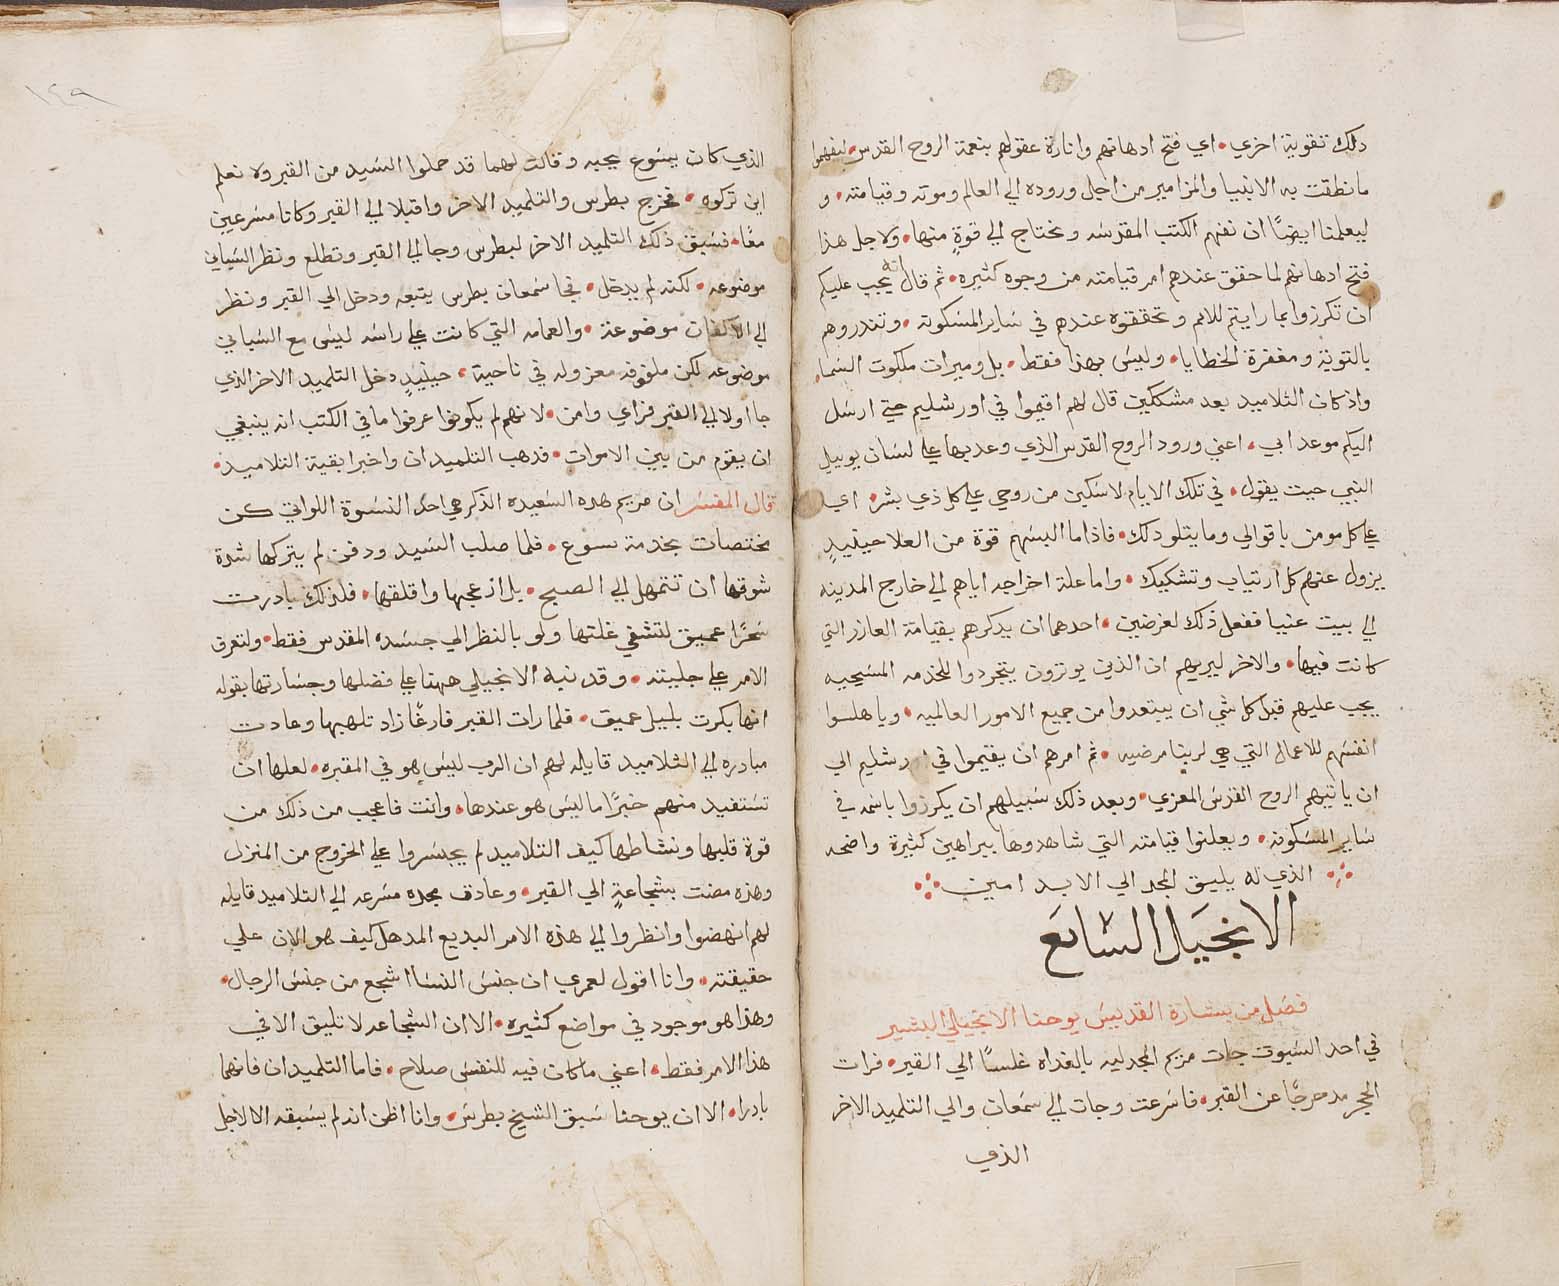 دلك تقوية اخري • اي فتح ادهانهم وانارة عقولهم بنعمة الروح القدس • ليفهموا
مانطقت به الانبيا والمزامير من اجل وروده الي العالم وموته وقيامته • و
ليعلمنا ايضًا ان نفهم الكتب المقدسه ونحتاج الي قوةٍ منها • ولاجل هذا
فتح ادهانهم لما حقق عندهم امر قيامته من وجوه كثيره • ثم قال انه يجب عليكم
ان تكرزوا بما رايتم للامم وتحققوه عندهم في ساير المسكونه • وتندروهم
بالتوبة ومغفرة الخطايا • وليس بهذا فقط • بل وميرات ملكوت السما •
واذ كان التلاميد بعد مشككين قال لهم اقيموا في اورشليم حتي ارسل
اليكم موعد ابي • اعني ورود الروح القدس الذي وعد بها علي لسان يوييل
النبي حيت يقول • في تلك الايام لاسكبن من روحي علي كل ذي بشر • اي
علي كل مومن باقوالي وما يتلو دلك • فاذا ما البسهم قوة من العلا حينيدٍ
يزول عنهم كل ارتياب وتشكيك • واما علة اخراجه اياهم الي خارج المدينه
الي بيت عنيا ففعل ذلك لغرضين • احدهما ان يدكرهم بقيامة العازر التي
كانت فيها • والاخر ليريهم ان الذين يوترون يتجردوا للخدمه المسيحيه
يجب عليهم قبل كل شي ان يبتعدوا من جميع الامور العالميه • وياهلوا
انفسهم للاعمال التي هي لربنا مرضيه • ثم امرهم ان يقيموا في اورشليم الي
ان ياتيهم الروح القدس المعزي • وبعد ذلك سبيلهم ان يكرزوا باسمه في
ساير المسكونه • ويعلنوا قيامته التي شاهدوها ببراهين كثيرة واضحه
الذي له يليق المجد الي الابد امين
الانجيل السابع
فصل من بشارة القديس يوحنا الانجيلي البشير
في احد السبوت جات مريم المجدليه بالغداه غلسًا الي القبر • فرات
الحجر مدحرجًا عن القبر • فاسرعت وجات الي سمعان والي التلميد الاخر
الذي
١٤٩
الذي كان يسوع يحبه وقالت لهما قد حملوا السيد من القبر ولا نعلم
اين تركوه • فخرج بطرس والتلميد الاخر واقبلا الي القبر وكانا مسرعين
معًا • فسبق ذلك التلميد الاخر لبطرس وجا الي القبر وتطلع ونظر السباني
موضوعه • لكنه لم يدخل • فجا سمعان بطرس يتبعه ودخل الي القبر ونظر
الي الاكفان موضوعة • والعمامه التي كانت علي راسه ليس مع السباني
موضوعه لكن ملفوفه معزوله في ناحية • حينيدٍ دخل التلميد الاخر الذي
جا اولا الي القبر فراي وامن • لانهم لم يكونوا عرفوا ما في الكتب انه ينبغي
ان يقوم من بين الاموات • فدهب التلميدان واخبرا بقية التلاميد •
قال المفسر ان مريم هده السعيده الذكر هي احد النسوة اللواتي كن
مختصات بخدمة يسوع • فلما صلب السيد ودفن لم يتركها شدة
شوقها ان تتمهل الي الصبح • بل ازعجها واقلقها • فلذلك بادرت
سحرًا عميق لتشفي غلتها ولو بالنظر الي جسده المقدس فقط • ولتعرف
الامر علي جليته • وقد نبه الانجيلي ههنا علي فضلها وجسارتها بقوله
انها بكرت بليل عميق • فلما رات القبر فارغًا زاد تلهبها وعادت
مبادره الي التلاميد قايله لهم ان الرب ليس هو في المقبره • لعلها ان
تستفيد منهم خبرًا ما ليس هو عندها • وانت فاعجب من ذلك من
قوة قلبها ونشاطها كيف التلاميد لم يجسروا علي الخروج من المنزل
وهذه مضت بشجاعةٍ الي القبر • وعادت مجده مسرعه الي التلاميد قايله
لهم انهضوا وانظروا الي هذه الامر البديع المدهل كيف هو الان علي
حقيقته • وانا اقول لعمري ان جنس النسا اشجع من جنس الرجال •
وهذا هو موجود في مواضع كثيره • الا ان الشجاعه لا تليق الا في
هذا الامر فقط • اعني ما كان فيه للنفس صلاح • فاما التلميدان فانهما
بادرا • الا ان يوحنا سبق الشيخ بطرس • وانا اظن انه لم يسبقه الا لاجل